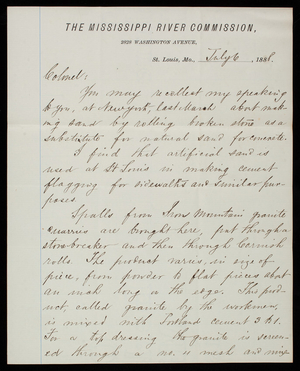 THE MISSISSIPPI RIVER COMMISSION,
2828 WASHINGTON AVENUE,
St. Louis, Mo., July 6, 1888.
Colonel:
You may recollect my speaking
to you, at Newport, last March about mak-
ing sand by rolling broken stone as a
substitute for natural sand for concrete.
I find that artificial sand is
used at St Louis in making cement
flagging for sidewalks and similar pur-
poses.
Spalls from Iron Mountain granite
quarries are bought here, put through a
stonebreaker and then through Cornish
rolls. The product varies, in size of
piece, from powder to flat pieces about
an inch long on the edge. The prod-
uct, called granite by the workmen,
is mixed with Portland cement 3 to 1.
For a top dressing the granite is screen-
ed through a no. 11 mesh and mix-